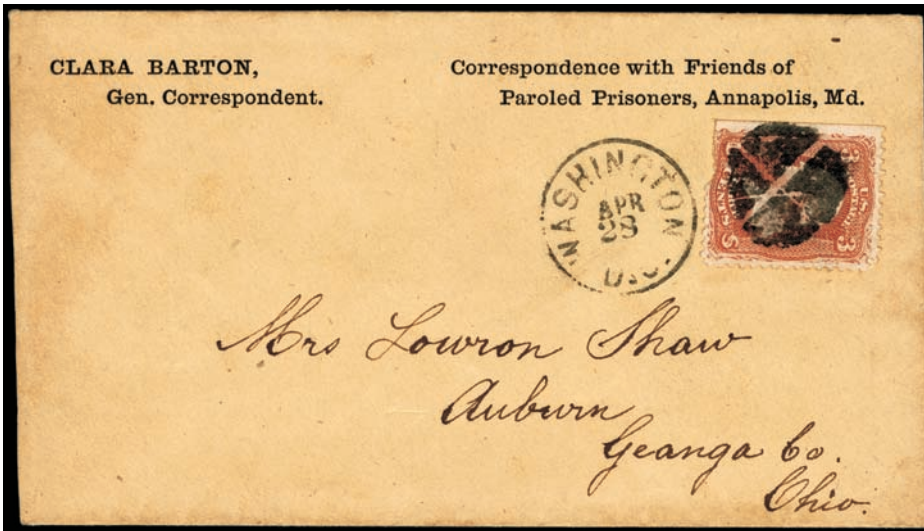 CLARA BARTON,
Gen. Correspondent.
Correspondence with Friends of
Paroled Prisoners, Annapolis, Md.
WASHINGTON
APR
28
D.C.
3
3
Mrs Lowron Shaw
Auburn
Geanga Co.
Ohio.